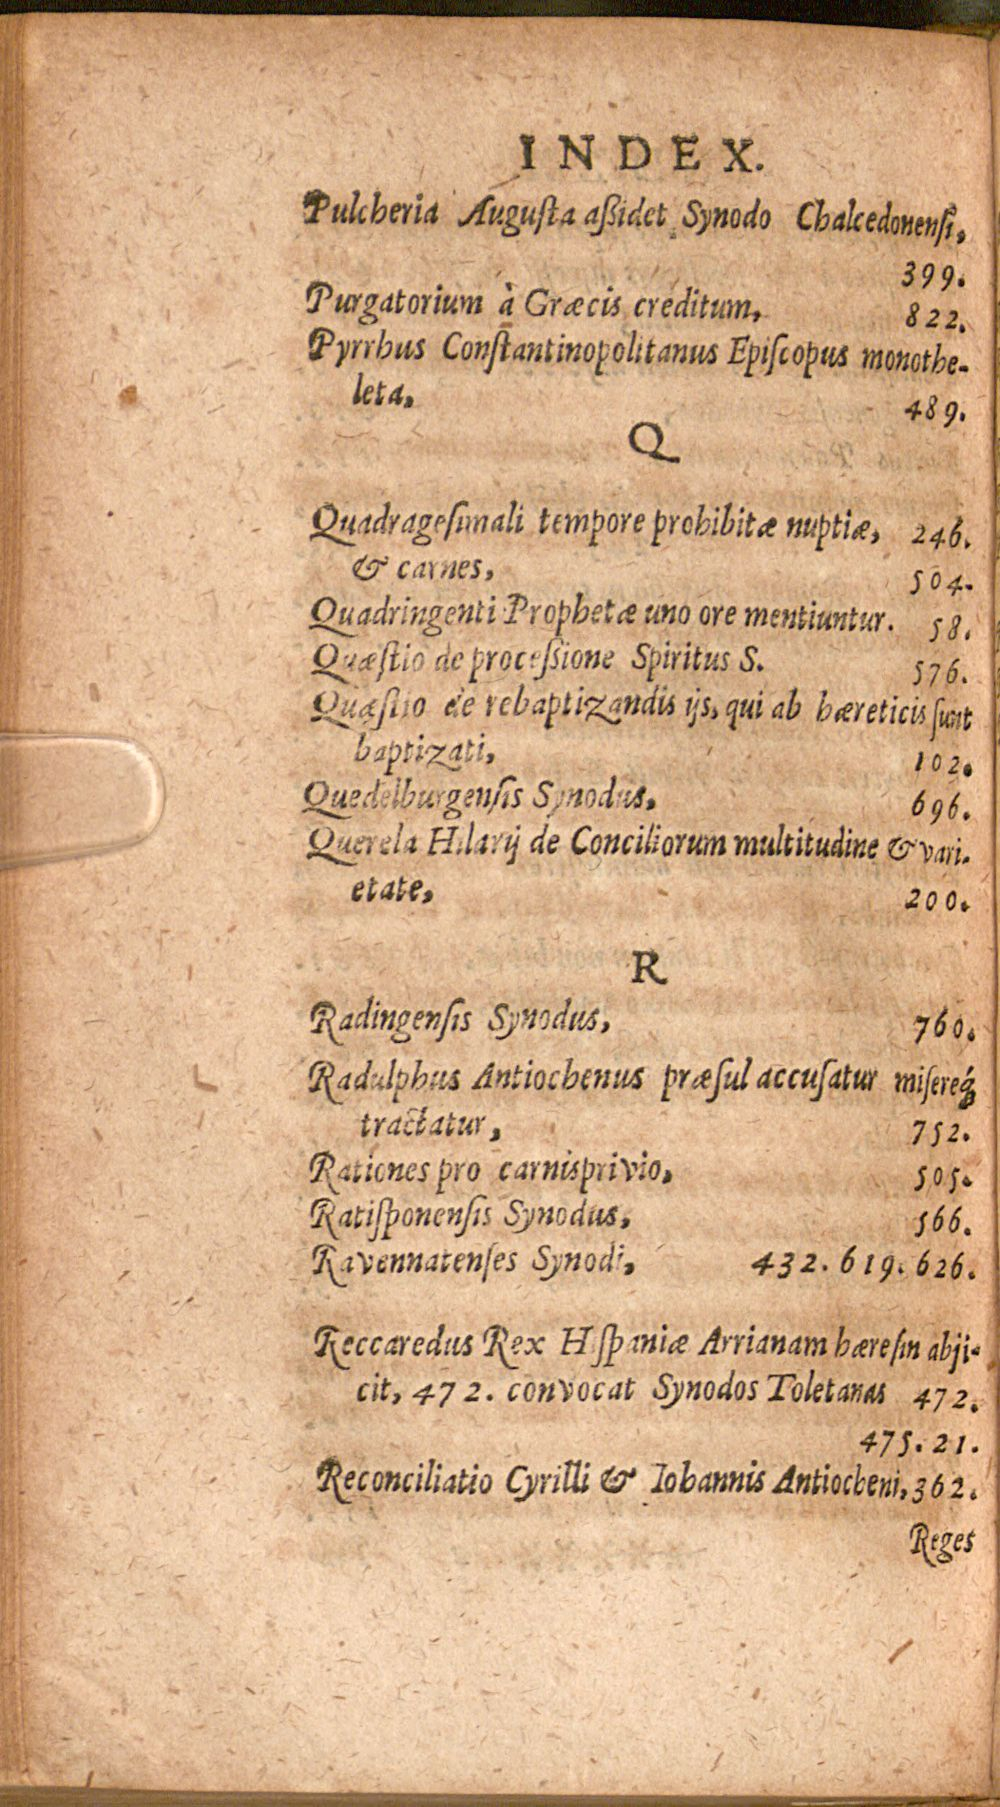 INDEX.
Pulcheria Augusta aßidet Synodo Chalcedonensi,
399.
Purgatorium à Græcis creditum, 822.
Pyrrhus Conſtantinopolitanus Epiſcopus monothe-
leta, 489.
Q
Quadrageſimali tempore prohibitæ nuptiæ, 246.
& carnes, 504.
Quadringenti Prophetæ uno ore mentiuntur. 58.
Quæſtio de proceſſione Spiritus S. 576.
Quæſtio de rebaptizandis ijs, qui ab hæreticis ſunt
baptizati, 102.
Quedelburgenſis Synodus. 696.
Querela Hilarij de Conciliorum multitudine & vari-
etate, 200.
R
Radingenſis Synodus, 760.
Radulphus Antiochenus præſul accuſatur miſereq́;
tractatur, 752.
Rationes pro carnisprivio, 505.
Ratiſponenſis Synodus, 566.
Ravennatenſes Synodi, 432. 619. 626.
Reccaredus Rex Hiſpaniæ Arrianam hæreſin abji-
cit, 472. convocat Synodos Toletanas 472.
475. 21.
Reconciliatio Cyrilli & Iohannis Antiocheni, 362.
Reges